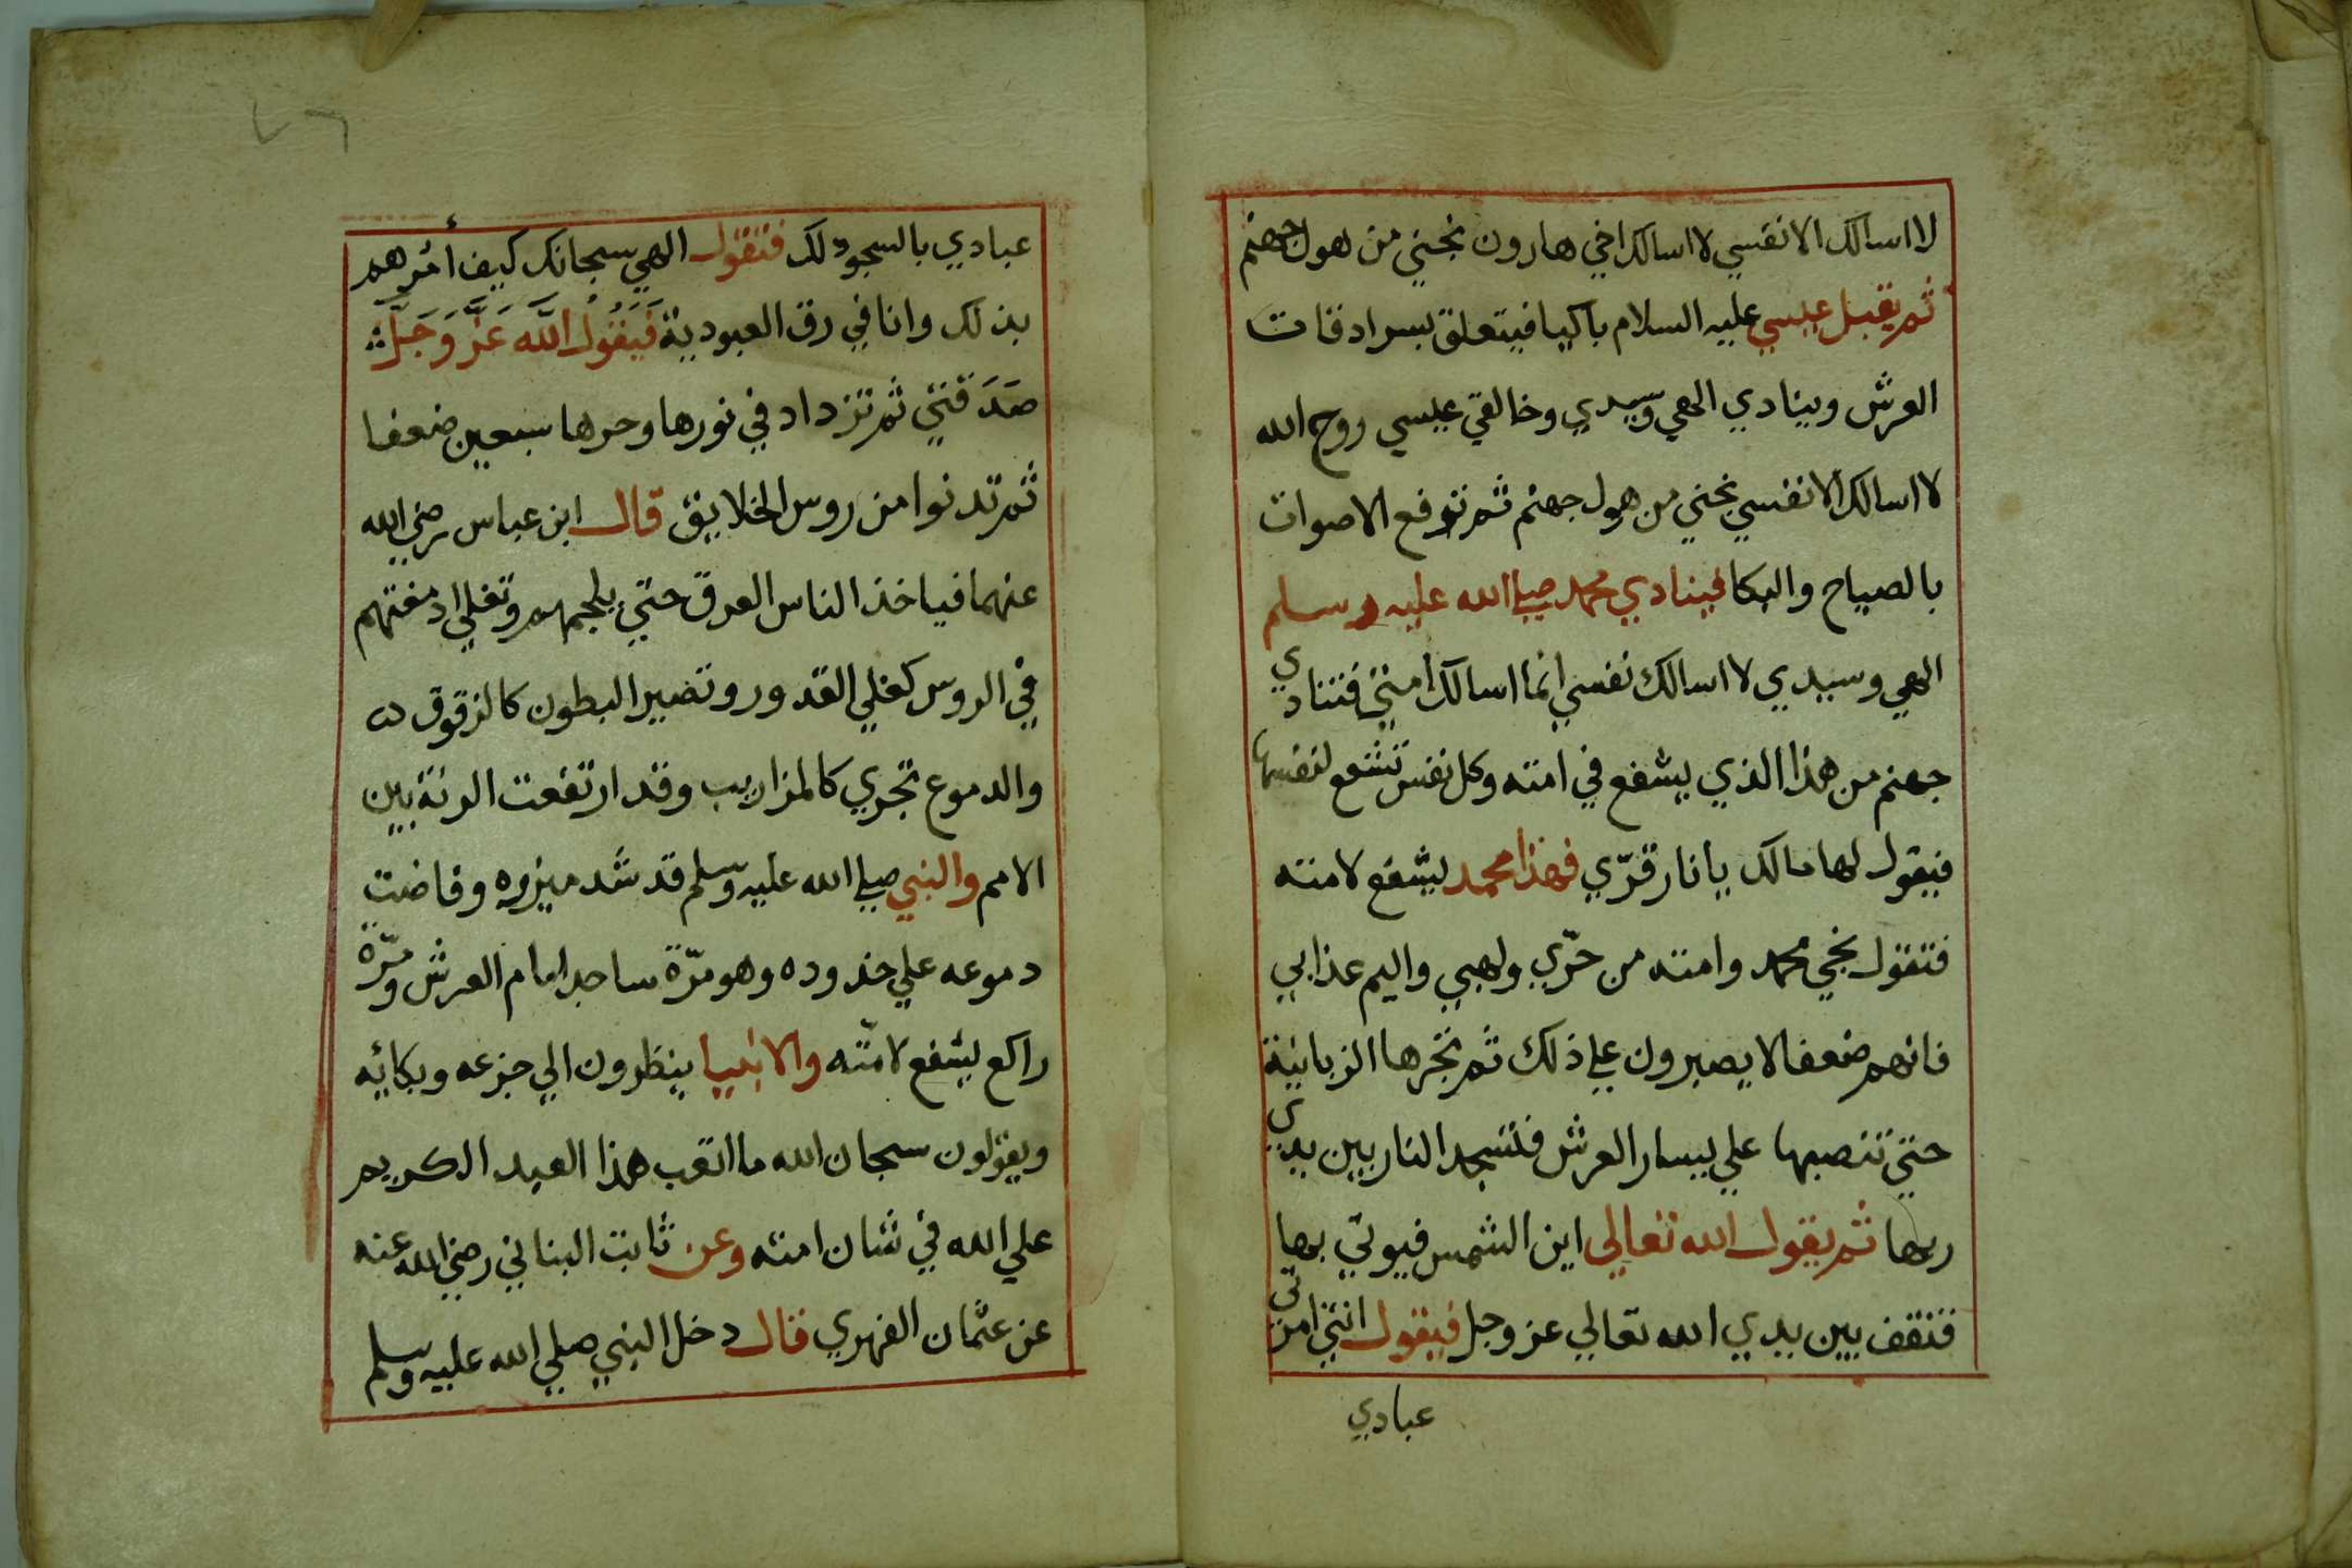 لا اسالك الا نفسي لا اسالك اخي هارون نجني من هول جهنم
ثم يقبل عيسي عليه السلام باكيا فيتعلق بسرادقات
العرش وينادي الهي وسيدي وخالقي عيسي روح الله
لا اسالك الا نفسي نجني من هول جهنم ثم ترتفع الاصوات
بالصياح والبكا فينادي محمد صلي الله عليه وسلم
الهي وسيدي لا اسالك نفسي انما اسالك امتي فتنادي
جهنم من هذا الذي يشفع في امته وكل نفس تشفع لنفسها
فيقول لها مالك يا نار قرّي فهذا محمد يشفع لامته
فتقول نجي محمد وامته من حرّي ولهبي واليم عذابي
فانهم ضعفا لا يصبرون علي ذلك ثم تجرها الزبانية
حتي تنصبها علي يسار العرش فتسجد النار بين يدي
ربها ثم يقول الله تعالي اين الشمس فيوتي بها
فتقف بين يدي الله تعالي عز وجل فيقول انتي امرتي
عبادي
٢٦
عبادي بالسجود لك فتقول الهي سبحانك كيف أمرهم
بذلك وانا في رق العبودية فَيَقُولُ اللَّه عَزَّ وَجَلَّ
صَدَقتي ثم تزداد في نورها وحرها سبعين ضعفا
ثم تدنوا من روس الخلايق قال ابن عباس رضي الله
عنهما فياخذ الناس العرق حتي يلجمهم وتغلي ادمغتهم
في الروس كغلي القدور وتصير البطون كالزقوق
والدموع تجري كالمزاريب وقد ارتفعت الرنة بين
الامم والنبي صلي الله عليه وسلم قد شد ميزره وفاضت
دموعه علي خدوده وهو مرّة ساجد امام العرش ومرّة
راكع يشفع لامّته والانبيا ينظرون الي جزعه وبكائه
ويقولون سبحان الله ما اتعب هذا العبد الكريم
علي الله في شان امته وعن ثابت البناني رضي الله عنه
عن عثمان الفهري قال دخل النبي صلي الله عليه وسلم